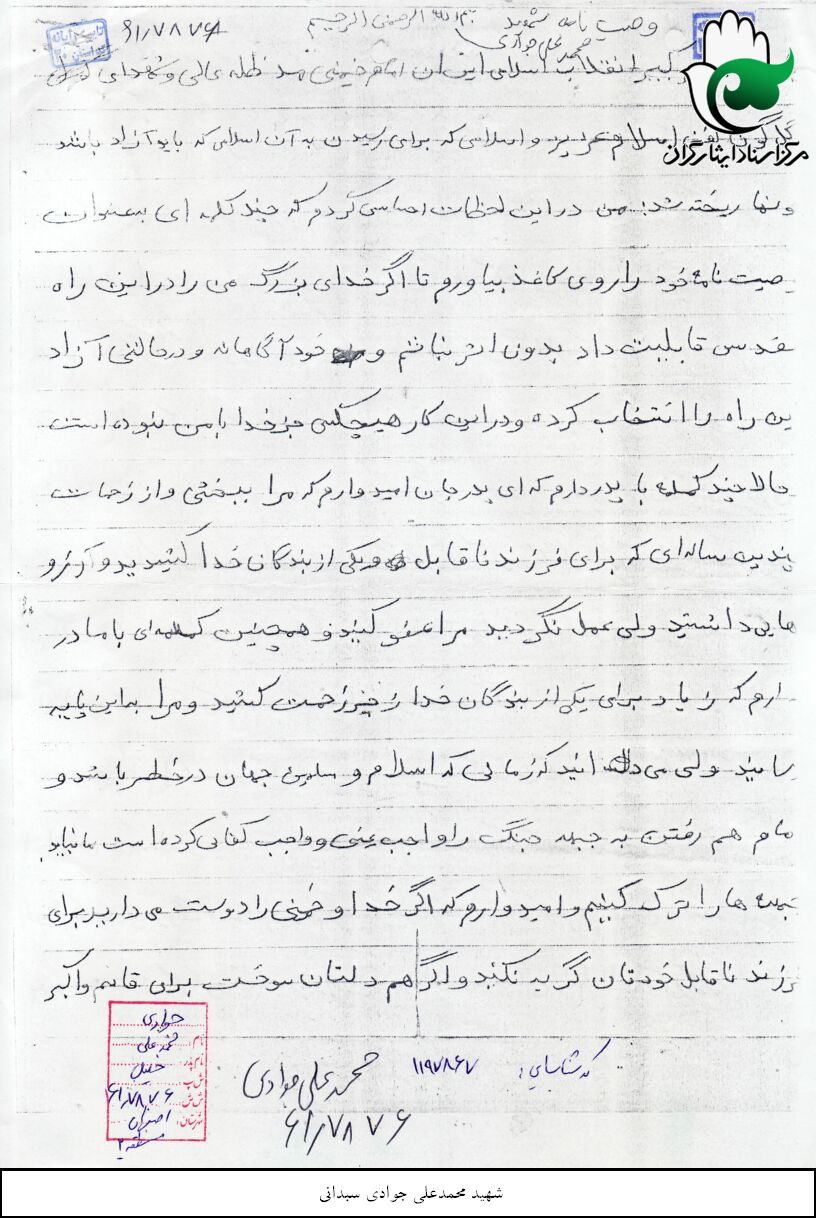 وصیت نامه شهید بسم الله الرحمن الرحیم
محمد علی جوادی
کبیر انقلاب اسلامی ایران امام خمینی مد ظله عالی و شهدای
مرکز اسناد ایثارگران
اسلام عزیز و اسلامی که برای رسیدن به آن اسلامی که باید آزاد باشد
ونها ریخته شد، من در این لحظات احساس کردم که چند کلمه ای بعنوان
صیت نامه خود را روی کاغذ بیاورم تا اگر خدای بزرگ من را در این راه
قدس قابلیت داد بدون اثر نباشم و خود آگاهانه و در حالتی آزاد
ین راه را انتخاب کرده و در این کار هیچکس جز خدا با من نبوده است
حالا چند کلمه با پدر دارم که ای پدر جان امیدوارم که مرا ببخشی و از زحمات
چندین ساله ای که برای فرزند ناقابل و یکی از بندگان خدا کشیدید و آرزو
هایی داشتید ولی عمل نگردید مرا عفو کنید و همچنین کلمه ای با مادر
ارم که زیاد برای یکی از بندگان خدا زجر زحمت کشید و مرا به این پایه
سانید ولی می دانید که زمانی که اسلام و مسلمین جهان در خطر باشد و
مام هم رفتن به جبهه جنگ را واجب عینی و واجب کفائی کرده است ما نباید
جبهه ها را ترک کنیم و امیدوارم که اگر خدا و خمینی را دوست می دارید برای
فرزند ناقابل خودتان گریه نکنید و اگر هم دلتان سوخت برای قاسم و اکبر
کد شناسایی: ۱۱۹۷۸۶۷
محمد علی جوادی
جوادی
نام: محمد علی
نام پدر: خلیل
ش پ:
شهرستان:
منطقه ۲
شهید محمدعلی جوادی سبدانی